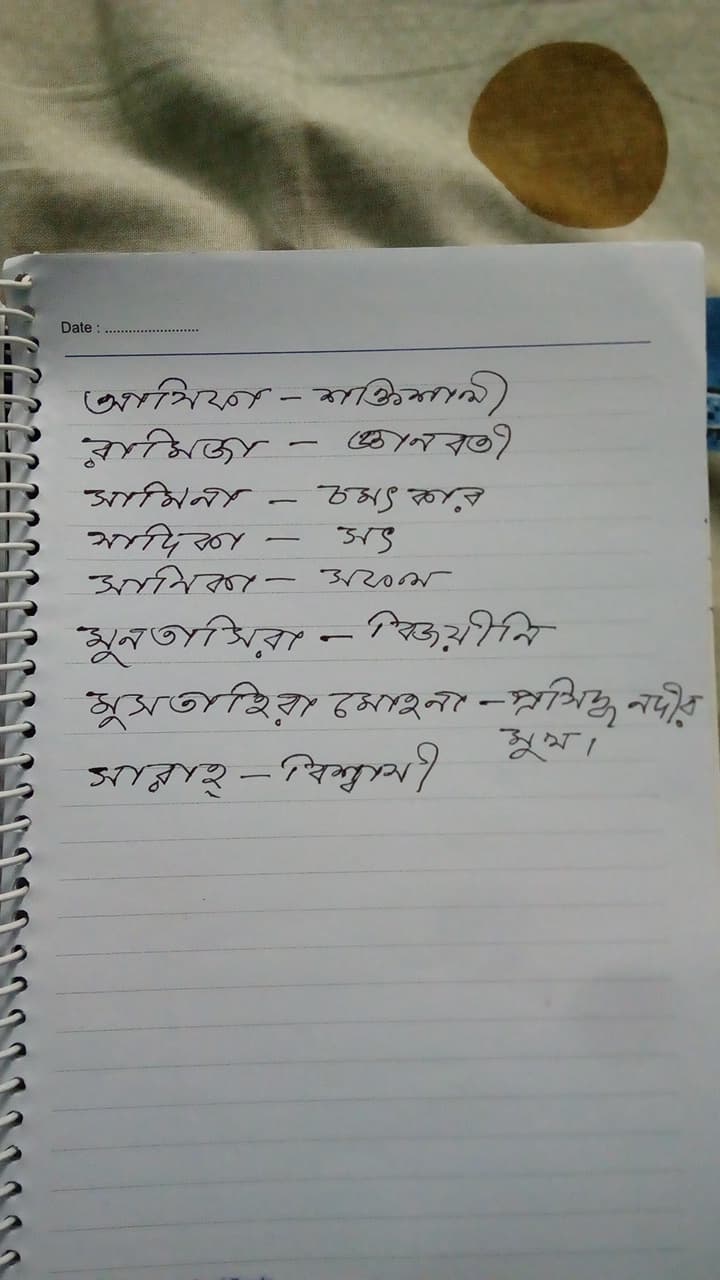 Date : ........................
আসিফা - শক্তিশালী
রামিজা - জ্ঞানবতী
সামিনা - চমৎকার
সাদিকা - সৎ
সাবিকা - সফল
মুনতাসিরা - বিজয়ীনি
মুসতাহিরা মোহনা - প্রসিদ্ধ নদীর
মুখ।
সারাহ্ - বিশ্বাসী